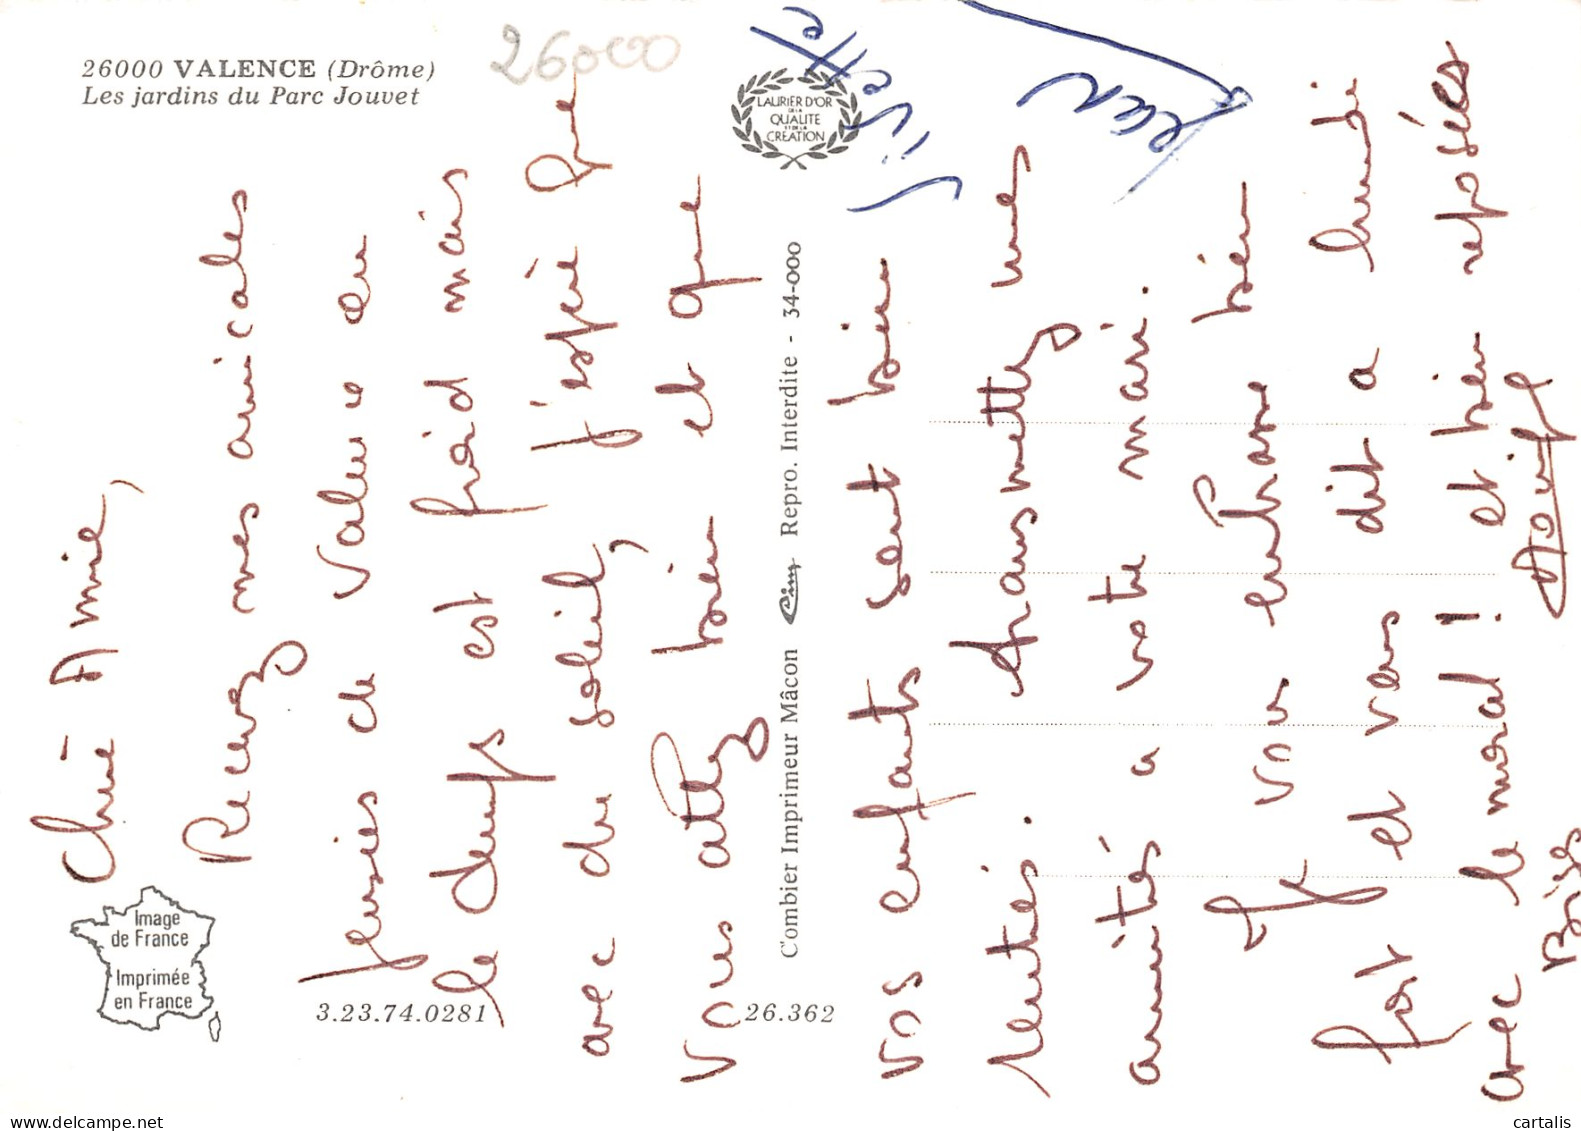 26000 VALENCE (Drôme)
Les jardins du Parc Jouvet
26000
LAURIER D'OR
DE LA
QUALITE
ET DE LA
CREATION
Chère Amie,
Recevez mes amicales
pensées de Valence ou
le temps est froid mais
avec du soleil, j'espère que
vous allez bien et que
vos enfants sont bien
rentrés. transmettez mes
amitiés a votre mari.
Je vous embrasse bien
fort et vous dit a lundi
avec le moral! et bien reposés
Bises
Jean
Combier Imprimeur Mâcon Cim Repro. Interdite - 34-000
Image
de France
Imprimée
en France
3.23.74.0281
26.362